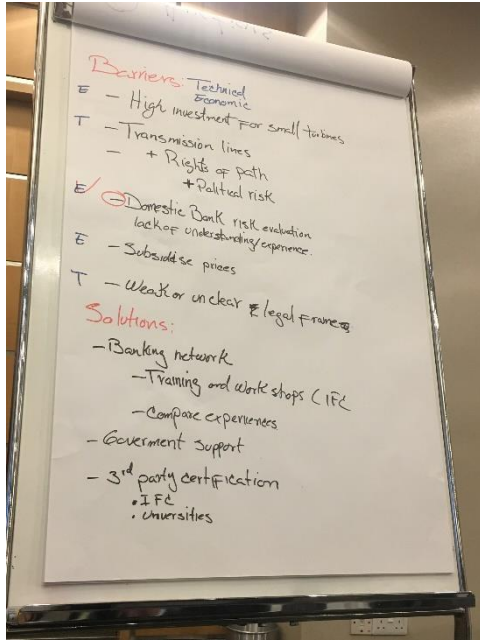 Barriers: Technical
Economic
E - High investment for small turbines
T - Transmission lines
- + Rights of path
+ Political risk
E - Domestic Bank risk evaluation
lack of understanding/experience.
E - Subsidise prices
T - Weak or unclear legal frames
Solutions:
- Banking network
- Training and workshops (IFC
- Compare experiences
- Goverment support
- 3rd party certification
• IFC
• Universities